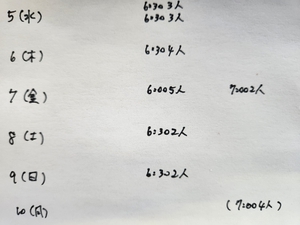 6:30 3人
5(水) 6:30 3人
6(木) 6:30 4人
7(金) 6:00 5人 7:00 2人
8(土) 6:30 2人
9(日) 6:30 2人
10(月) (7:00 4人)